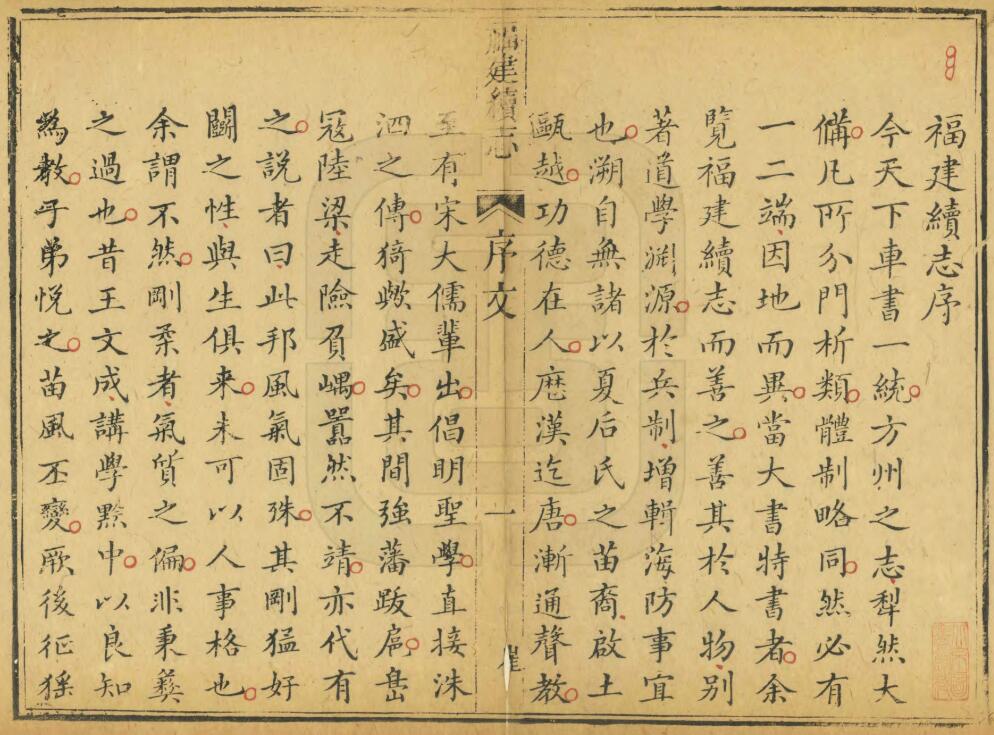 福建續志序
今天下車書一統方州之志犁然大
備凡所分門析類體制略同然必有
一二端因地而異當大書特書者余
覽福建續志而善之善其於人物別
著道學淵源於兵制增輯海防事宜
也溯自無諸以夏后氏之苗裔啟土
甌越功德在人歷漢迄唐漸通聲教
福建續志
序文
一
崑
至有宋大儒輩出倡明聖學直接洙
泗之傳猗歟盛矣其間強藩跋扈島
寇陸梁走險負嵎嚚然不靖亦代有
之說者曰此邦風氣固殊其剛猛好
鬭之性與生俱来未可以人事格也
余謂不然剛柔者氣質之偏非秉彜
之過也昔王文成講學黔中以良知
為教子弟悅之苗風丕變厥後征猺